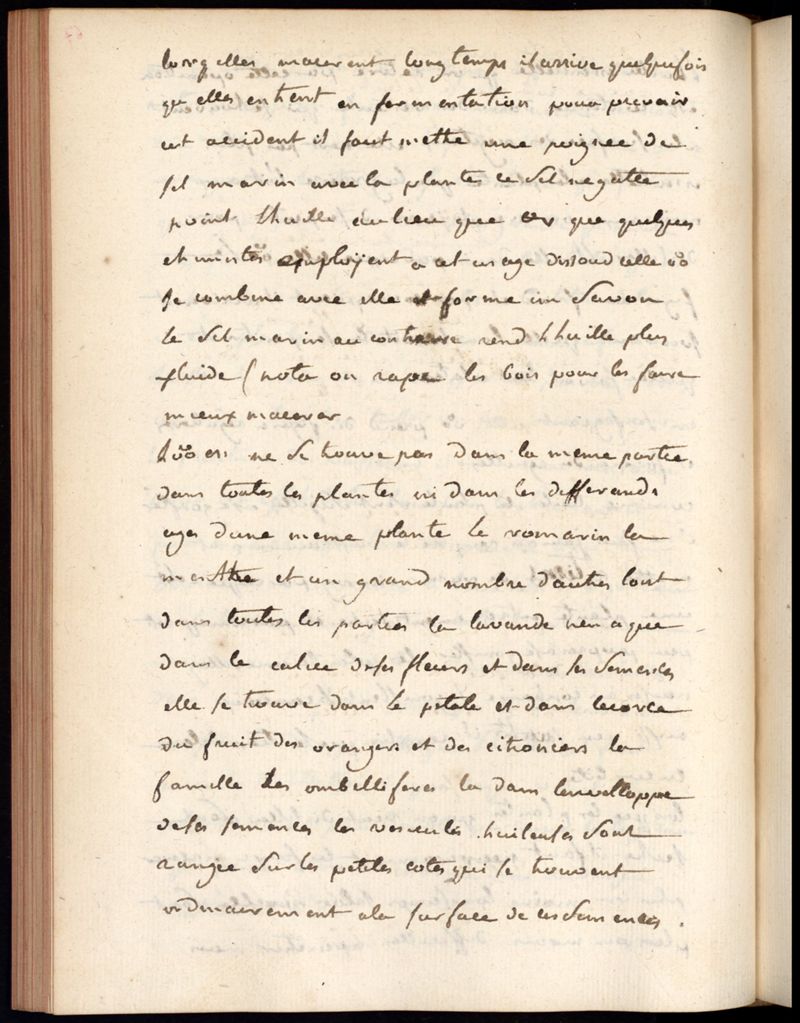 lorqelles macerent longtemps il arrive quelquefois
qu elles entrent en fermentation pour prevenir
cet accident il faut mettre une poignee de
sel marin avec la plantes ce sel negatte
point lhuille aulieu que que quelques
chimistes employent a cet usage dissoud celle
se combine avec elle et forme un savon
le sel marin au contraire rend lhuille plus
fluide ( nota on rape les bois pour les faire
mieux macerer
ne se trouve pas dans la meme partie
dans toutes les plantes ni dans les differends
ages dune meme plante le romarin la
menthe et un grand nombre dautres lont
dans toutes les parties la lavande nen a que
dans le calice de ses fleurs et dans ses semences
elle se trouve dans le petale et dans lecorce
du fruit des orangers et des citroniers la
famille des ombelliferes la dans lenvelloppe
de ses semences les vesicules huileuses sont
rangee sur les petites cotes qui se trouvent
ordinairement a la surface de ces semences .